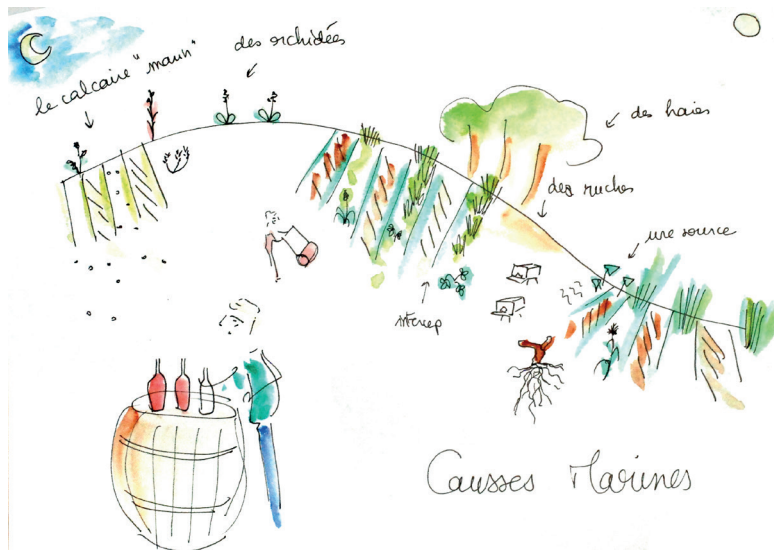 le calcaire "marin"
des orchidées
des haies
des ruches
une source
intercep
Causses Marines